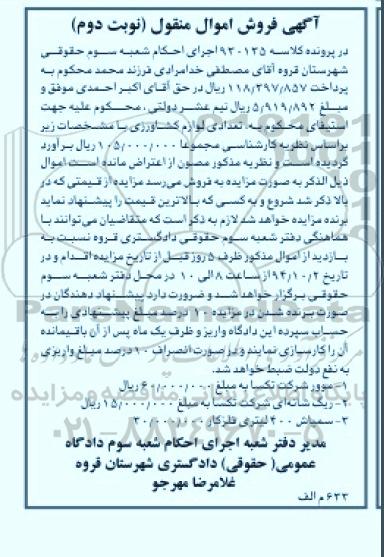 آگهی فروش اموال منقول (نوبت دوم)
در پرونده کلاسه ۱۲۵-۹۳ اجرای احکام شعبه سوم حقوقی
شهرستان قروه آقای مصطفی خدامرادی فرزند محمد محکوم به
پرداخت ۱۱۸/۳۹۷/۸۵۷ ریال در حق آقای اکبر احمدی موفق و
مبلغ ۵/۹۱۹/۸۹۲ ریال نیم عشر دولتی، محکوم علیه جهت
استیفای محکوم به، تعدادی لوازم کشاورزی با مشخصات زیر
براساس نظریه کارشناسی مجموعا ۱۰۵/۰۰۰/۰۰۰ ریال برآورد
گردیده است و نظریه مذکور مصون از اعتراض مانده است اموال
ذیل الذکر به صورت مزایده به فروش می‌رسد مزایده از قیمتی که در
بالا ذکر شد شروع و به کسی که بالاترین قیمت را پیشنهاد نماید
برنده مزایده خواهد شد لازم به ذکر است که متقاضیان می‌توانند با
هماهنگی دفتر شعبه سوم حقوقی دادگستری قروه نسبت به
بازدید از اموال مذکور ظرف ۵ روز قبل از تاریخ مزایده اقدام و در
تاریخ ۹۴/۱۰/۲ از ساعت ۸ الی ۱۰ در محل دفتر شعبه سوم
حقوقی برگزار خواهد شد و ضرورت دارد پیشنهاد دهندگان در
صورت برنده شدن در مزایده ۱۰ درصد مبلغ پیشنهادی را به
حساب سپرده این دادگاه واریز و ظرف یک ماه پس از آن باقیمانده
آن را کارسازی نمایند و در صورت انصراف ۱۰ درصد مبلغ واریزی
به نفع دولت ضبط خواهد شد.
۱- موور شرکت تکسا به مبلغ ۶۰/۰۰۰/۰۰۰ ریال
۲- ریک شانه‌ای شرکت تکسا به مبلغ ۱۵/۰۰۰/۰۰۰ ریال
۳- سمپاش ۴۰۰ لیتری فلزکار ۳۰/۰۰۰/۰۰۰
مدیر دفتر شعبه اجرای احکام شعبه سوم دادگاه
عمومی( حقوقی) دادگستری شهرستان قروه
غلامرضا مهرجو
۶۲۳ م الف